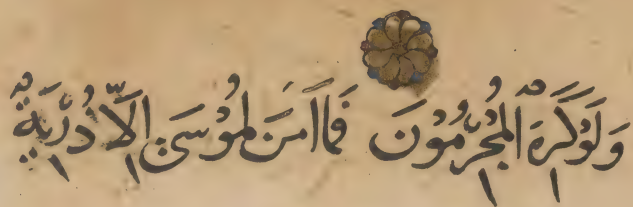 وَلَوْ كَرِهَ الْمُجْرِمُونَ فَمَا اٰمَنَ لِمُوسٰى اِلَّا ذُرِّيَّةٌ